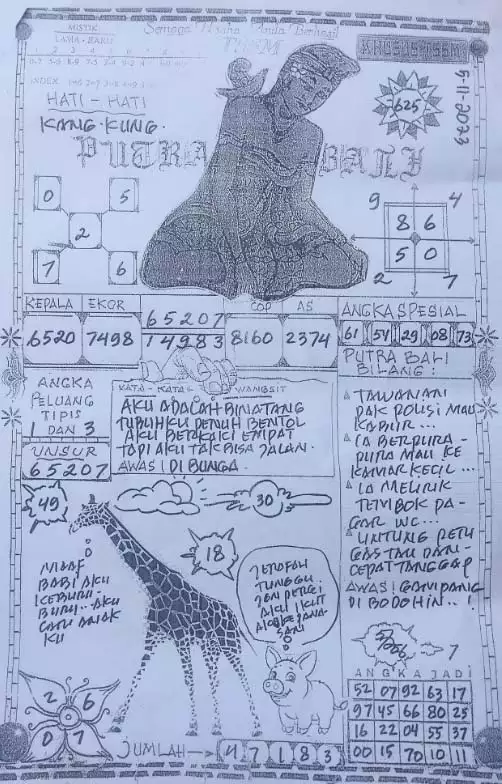 MISTIK
LAMA - BARU
INDEX
HATI - HATI
KANG-KUNG.
625
5-11-2023
PUTRA BALI
0 5
2
7 6
9 4
8 6
5 0
2 7
KEPALA EKOR COP AS
6520 7498 65207 8160 2374
14983
ANGKA SPESIAL
61 54 29 08 73
ANGKA
PELUANG
TIPIS
1 DAN 3
UNSUR
65207
KATA - KATA WANGSIT
AKU ADALAH BINATANG
TUBUHKU PENUH BENTOL
AKU BERKAKI EMPAT
TAPI AKU TAK BISA JALAN.
AWAS! DI BUNGA.
PUTRA BALI
BILANG :
TAWANAN
PAK POLISI MAU
KABUR...
IA BERPURA -
PURA MAU KE
KAMAR KECIL ...
IA MELIRIK
TEMBOK PA-
GAR WC...
UNTUNG PETU
GAS TAU DAN -
CEPAT TANGGAP
AWAS! GAMPANG
DI BODOHIN..!
49
30
18
MAAF
BABI AKU
KEBURU-
BURU.. AKU
ANAK
KU
JERAFAH
TUNGGU.
AKU IKUT
2 6
0 7
7
ANGKA JADI
52 07 92 63 17
97 45 66 80 25
16 22 04 55 37
00 15 70 10 11
JUMLAH → 4 7 1 8 3